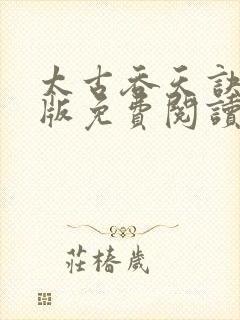 太古吞天訣
版免費閱讀
莊椿歲